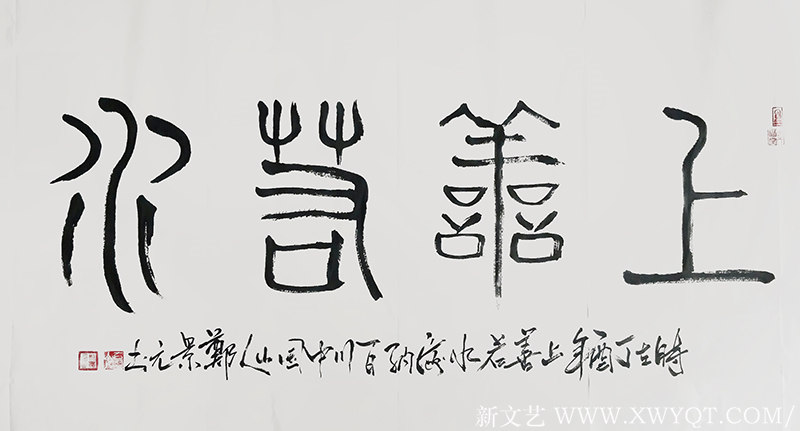 上善若水
時在丁酉年上善若水海納百川中国山人鄭景元书
新文艺 WWW.XWYQT.COM/